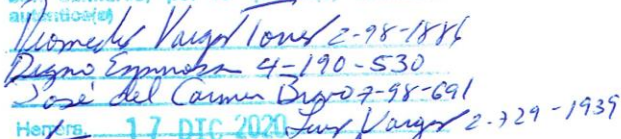 autentica(s)
Diomedes Vargas Torres 2-98-1886
Digno Espinosa 4-190-530
José del Carmen Bravo 7-98-691
Herrera, 17 DIC 2020 Luis Vargas 2-729-1939